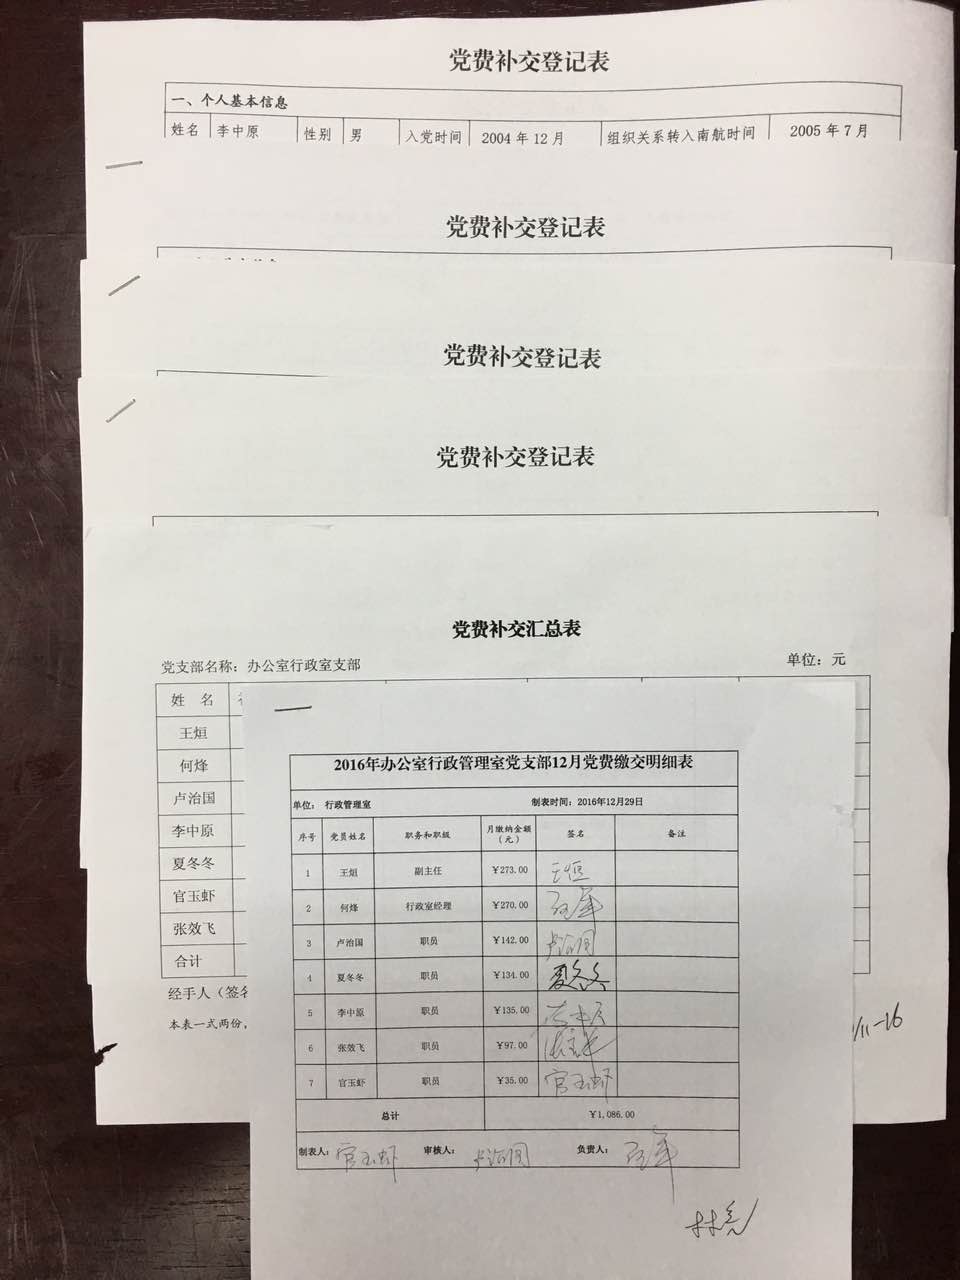 党费补交登记表
一、个人基本信息
姓名 李中原 性别 男 入党时间 2004 年 12 月 组织关系转入南航时间 2005 年 7 月
党费补交登记表
党费补交登记表
党费补交登记表
党费补交汇总表
党支部名称：办公室行政室支部 单位：元
姓 名
王烜
何烽
卢治国
李中原
夏冬冬
官玉虾
张效飞
合计
经手人（签名
本表一式两份，
11-16
2016年办公室行政管理室党支部12月党费缴交明细表
单位： 行政管理室 制表时间：2016年12月29日
序号 党员姓名 职务和职级 月缴纳金额（元） 签名 备注
1 王烜 副主任 ¥273.00 王恒
2 何烽 行政室经理 ¥270.00
3 卢治国 职员 ¥142.00 卢治国
4 夏冬冬 职员 ¥134.00 夏冬冬
5 李中原 职员 ¥135.00 李中原
6 张效飞 职员 ¥97.00
7 官玉虾 职员 ¥35.00 官玉虾
总计 ¥1,086.00
制表人：官玉虾 审核人：卢治国 负责人：